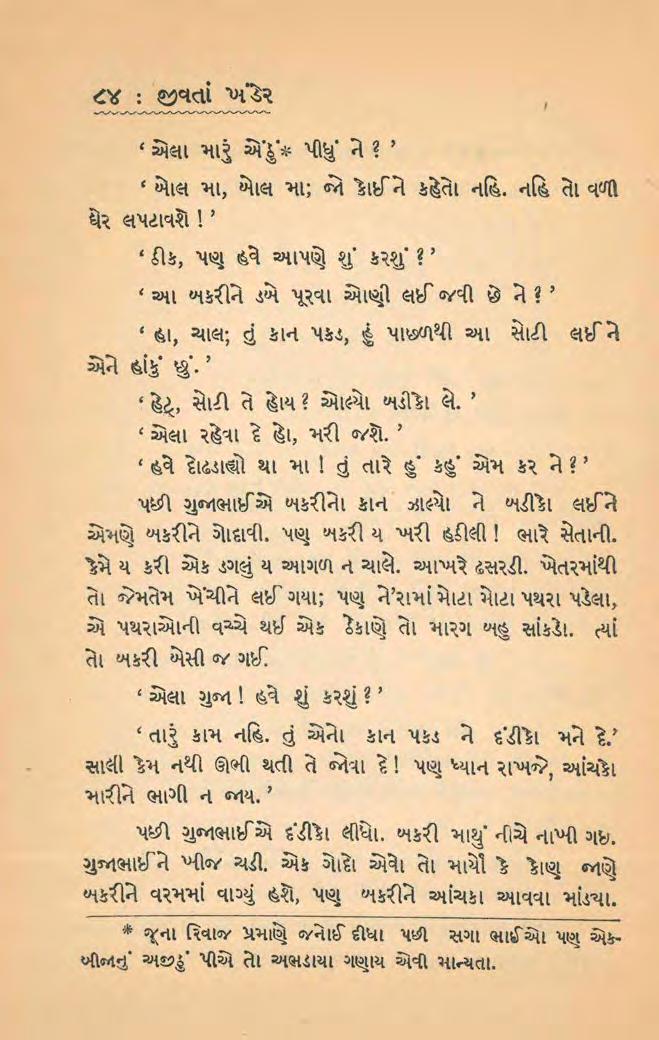 ૮૪ : જીવતાં ખંડેર
‘ એલા મારું એઠું* પીધું ને ? ’
‘ બોલ મા, બોલ મા; જો કોઈને કહેતો નહિ. નહિ તો વળી
ઘેર લપટાવશે ! ’
‘ ઠીક, પણ હવે આપણે શું કરશું ? ’
‘ આ બકરીને ડબે પૂરવા ઓણી લઈ જવી છે ને ? ’
‘ હા, ચાલ; તું કાન પકડ, હું પાછળથી આ સોટી લઈને
એને હાંકું છું. ’
‘ હેટ્, સોટી તે હોય ? ઓલ્યો બડીકો લે. ’
‘ એલા રહેવા દે હો, મરી જશે. ’
‘ હવે દોઢડાહ્યો થા મા ! તું તારે હું કહું એમ કર ને ? ’
પછી ગુજાભાઈએ બકરીનો કાન ઝાલ્યો ને બડીકો લઈને
એમણે બકરીને ગોદાવી. પણ બકરી ય ખરી હઠીલી ! ભારે સેતાની.
કેમે ય કરી એક ડગલું ય આગળ ન ચાલે. આખરે ઢસરડી. ખેતરમાંથી
તો જેમતેમ ખેંચીને લઈ ગયા; પણ ને’રામાં મોટા મોટા પથરા પડેલા,
એ પથરાઓની વચ્ચે થઈ એક ઠેકાણે તો મારગ બહુ સાંકડો. ત્યાં
તો બકરી બેસી જ ગઈ.
‘ એલા ગુજા ! હવે શું કરશું ? ’
‘ તારું કામ નહિ. તું એનો કાન પકડ ને દંડીકો મને દે.’
સાલી કેમ નથી ઊભી થતી તે જોવા દે ! પણ ધ્યાન રાખજે, આંચકો
મારીને ભાગી ન જાય. ’
પછી ગુજાભાઈએ દંડીકો લીધો. બકરી માથું નીચે નાખી ગઇ.
ગુજાભાઈને ખીજ ચડી. એક ગોદો એવો તો માર્યો કે કોણ જાણે
બકરીને વરમમાં વાગ્યું હશે, પણ બકરીને આંચકા આવવા માંડ્યા.
* જૂના રિવાજ પ્રમાણે જનોઈ દીધા પછી સગા ભાઈઓ પણ એક-
બીજાનું અજીઠું પીએ તો અભડાયા ગણાય એવી માન્યતા.